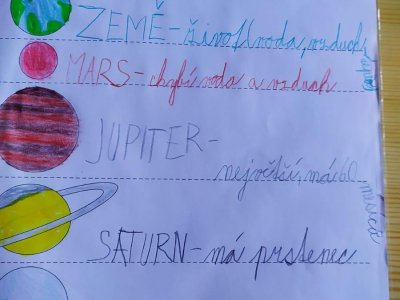 ZEMĚ - život, voda, vzduch,
MARS - chybí voda a vzduch
JUPITER -
největší, má 60
měsíců
SATURN - má prstenec